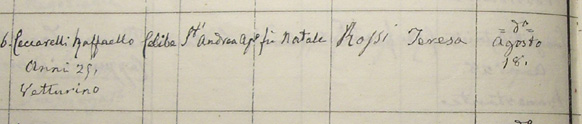 6. Ceccarelli Raffaello Celibe St. Andrea Apo fu Natale Rossi Teresa = dn =
Anni 25, Agosto
Vetturino 18.